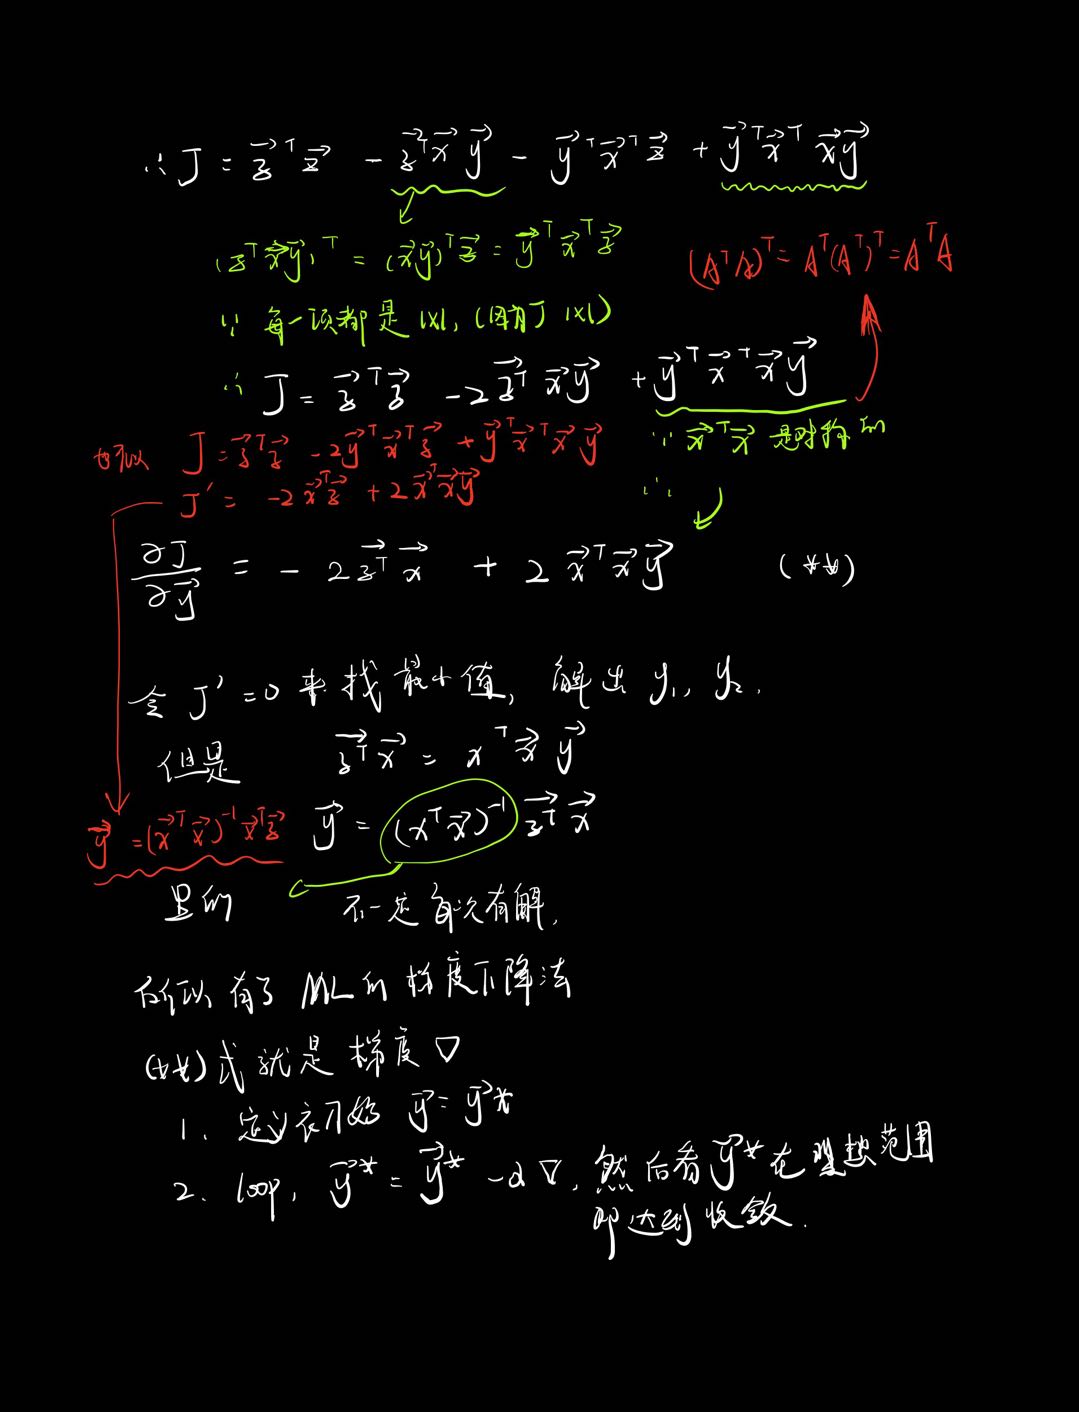 ∴ J = z⃗ᵀz⃗ - z⃗ᵀx⃗y⃗ - y⃗ᵀx⃗ᵀz⃗ + y⃗ᵀx⃗ᵀx⃗y⃗
(z⃗ᵀx⃗y⃗)ᵀ = (x⃗y⃗)ᵀz⃗ = y⃗ᵀx⃗ᵀz⃗
(AᵀA)ᵀ = Aᵀ(Aᵀ)ᵀ = AᵀA
∵ 每一项都是 1×1, (因为 J 1×1)
∴ J = z⃗ᵀz⃗ - 2z⃗ᵀx⃗y⃗ + y⃗ᵀx⃗ᵀx⃗y⃗
∵ x⃗ᵀx⃗ 是对称的
∴
J = z⃗ᵀz⃗ - 2y⃗ᵀx⃗ᵀz⃗ + y⃗ᵀx⃗ᵀx⃗y⃗
J' = -2x⃗ᵀz⃗ + 2x⃗ᵀx⃗y⃗
∂J/∂y⃗ = - 2z⃗ᵀx⃗ + 2x⃗ᵀx⃗y⃗ (**)
令 J' = 0 来找最小值, 解出 y₁, y₂.
但是 z⃗ᵀx⃗ = xᵀx⃗y⃗
y⃗ = (xᵀx⃗)⁻¹ z⃗ᵀx⃗
y⃗ = (x⃗ᵀx⃗)⁻¹x⃗ᵀz⃗
里的 不一定每次有解.
所以有了 ML的 梯度下降法
(**) 式就是 梯度 ▽
1. 定义初始 y⃗ = y⃗*
2. loop, y⃗* = y⃗* - α▽, 然后看 y⃗* 在理想范围
即达到收敛.